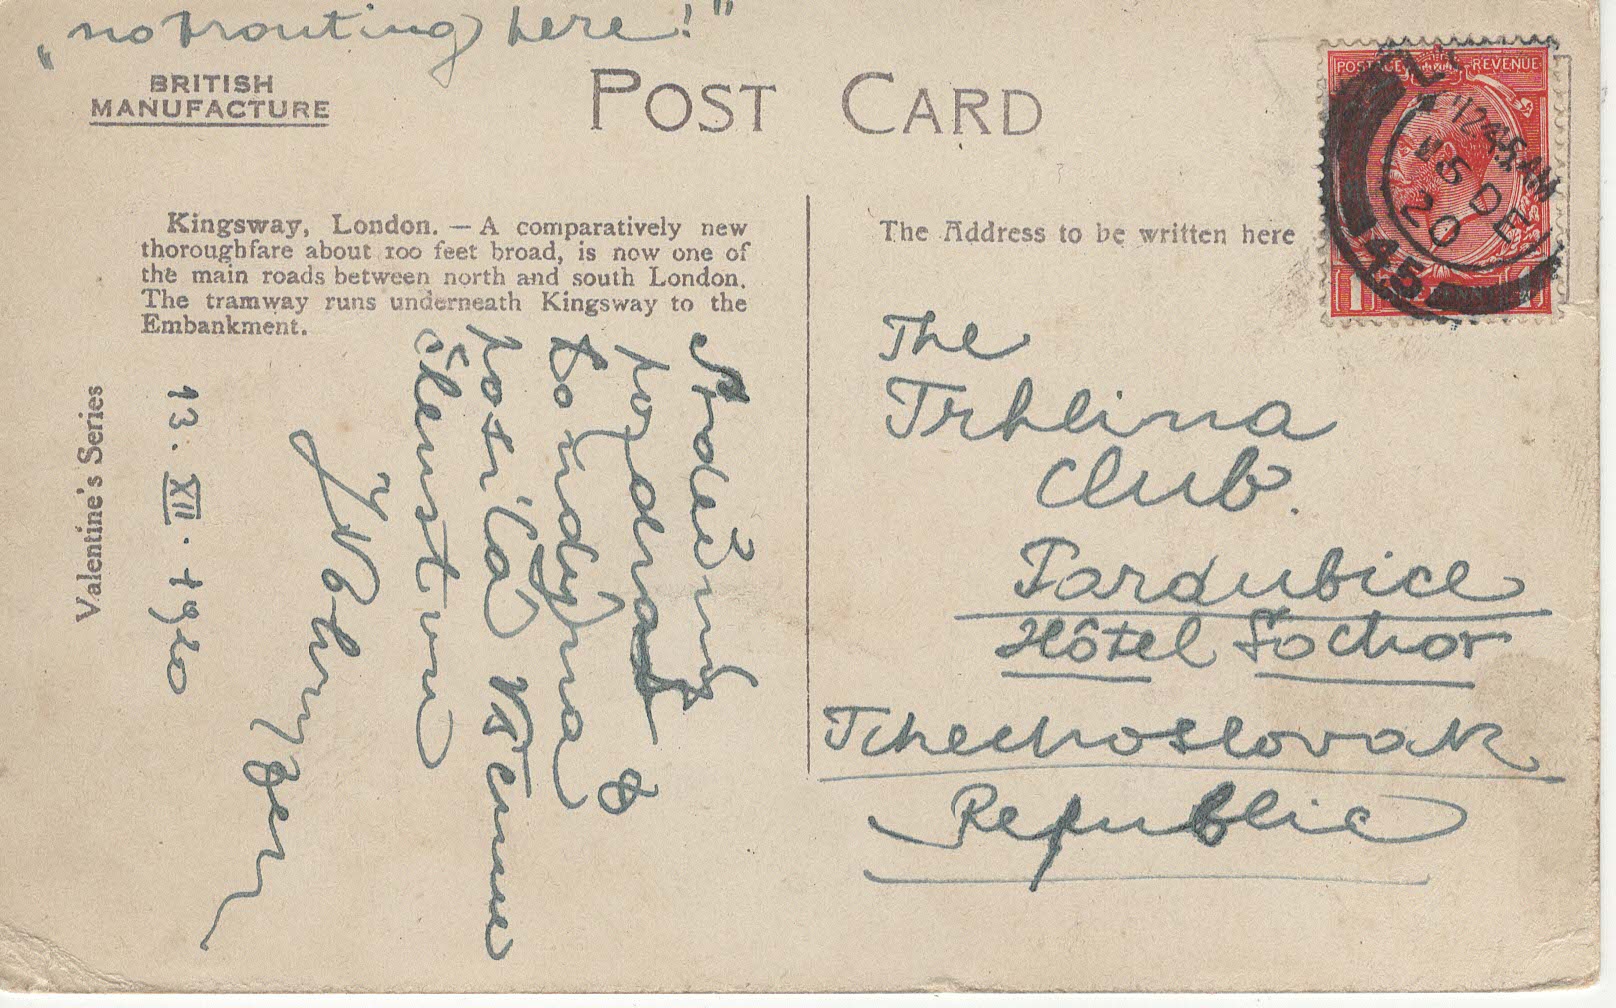 „no trouting here!"
BRITISH
MANUFACTURE
POST CARD
Kingsway, London. — A comparatively new
thoroughfare about 100 feet broad, is now one of
the main roads between north and south London.
The tramway runs underneath Kingsway to the
Embankment.
Valentine's Series
13. XII. 1920
Srdečný
pozdrav z
Londýna
posílá Všemu
členstvu
The Address to be written here
POSTAGE REVENUE
12.45 AM
15 DE
20
45
The
Trhlina
Club.
Pardubice
Hôtel Sochor
Tchechoslovak
Republic